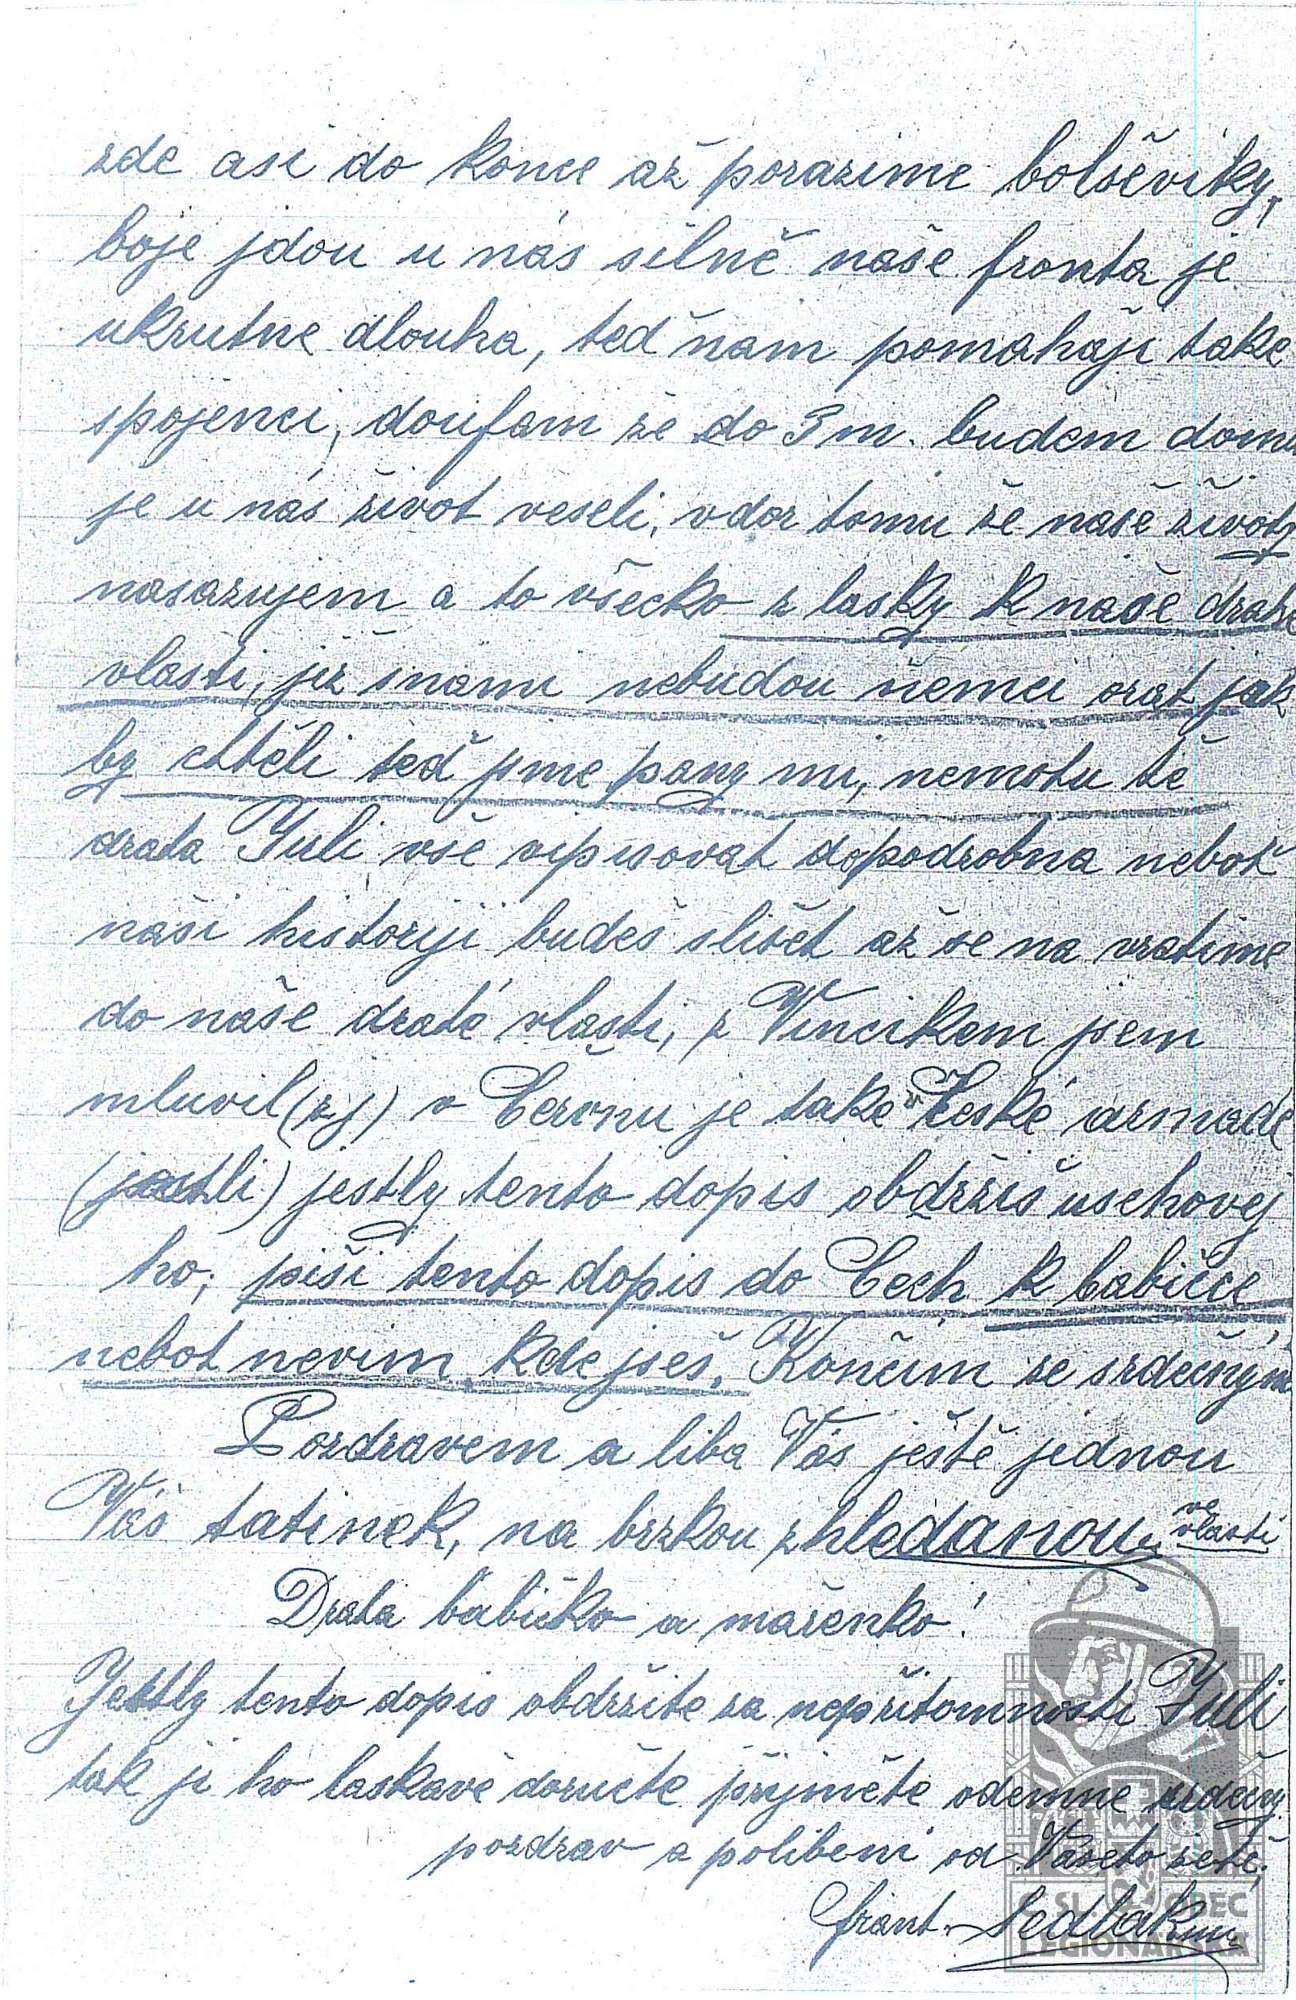 zde asi do konce až porazime bolševiky,
boje jdou u nás silně naše fronta je
ukrutne dlouha, teď nam pomahaji take
spojenci, doufam že do 3 m. budem doma
je u nás život veseli, vdor tomu že naše životy
nasazujem a to všecko z lasky k naše draže
vlasti, již snami nebudou němci orat jak
by chtěli teď jsme pany mi, nemohu tě
draha Yuli vše vipisovat dopodrobna neboť
naši historiji budeš slišet až se na vratime
do naše drahé vlasti, z Vincikem jsem
mluvil (zj) v Beronu je take v České armadě
jestly tento dopis obdržiš uschovej
ho, piši tento dopis do Čech k babičce
nebot nevim kde jseš. Končim se srdečným
Pozdravem a liba Vás ještě jednou
Váš tatinek, na brzkou zhledanou ve vlasti
Draha babičko a mařenko!
Jestly tento dopis obdržite za nepřitomnosti Yuli
tak ji ho laskavě doručte přijměte odemne srdečný
pozdrav a polibeni od Vašeho zetě,
frant. Sedlak
Č SL. OBEC
LEGIONÁŘSKÁ